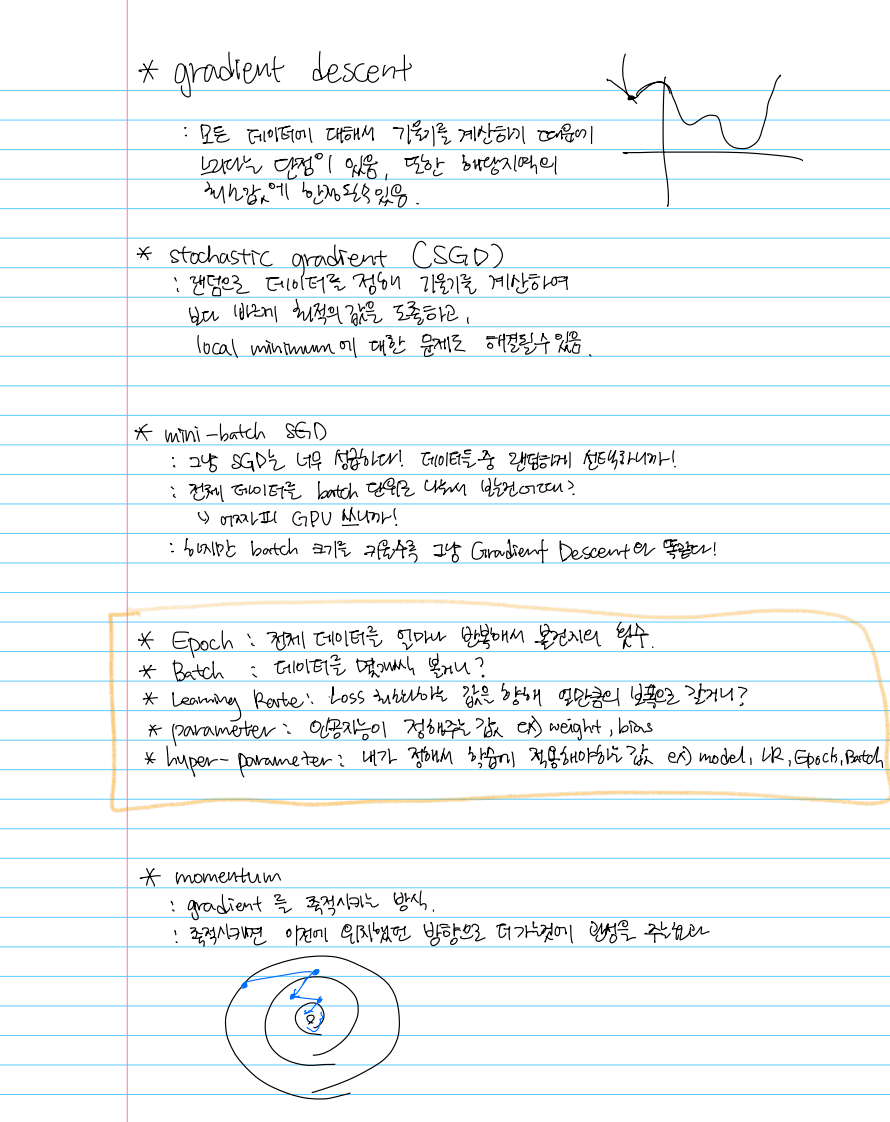 * gradient descent
: 모든 데이터에 대해서 기울기를 계산하기 때문에
느리다는 단점이 있음, 또한 해당지역의
최소값에 한정될수있음.
* stochastic gradient (SGD)
: 랜덤으로 데이터를 정해 기울기를 계산하여
보다 빠르게 최적의 값을 도출하고,
local minimum에 대한 문제도 해결될수 있음.
* mini-batch SGD
: 그냥 SGD는 너무 성급하다! 데이터들중 랜덤하게 선택하니까!
: 전체 데이터를 batch 단위로 나눠서 보는건어때?
↳ 어차피 GPU 쓰니까!
: 하지만 batch 크기를 키울수록 그냥 Gradient Descent와 똑같다!
* Epoch : 전체 데이터를 얼마나 반복해서 볼건지의 횟수.
* Batch : 데이터를 몇개씩 볼거니?
* Learning Rate : Loss 최소화하는 값을 향해 얼만큼의 보폭으로 갈거니?
* parameter : 인공지능이 정해주는 값 ex) weight, bias
* hyper-parameter : 내가 정해서 학습에 적용해야하는 값 ex) model, LR, Epoch, Batch
* momentum
: gradient 를 축적시키는 방식.
: 축적시키면 이전에 위치했던 방향으로 더 가는것에 관성을 주는